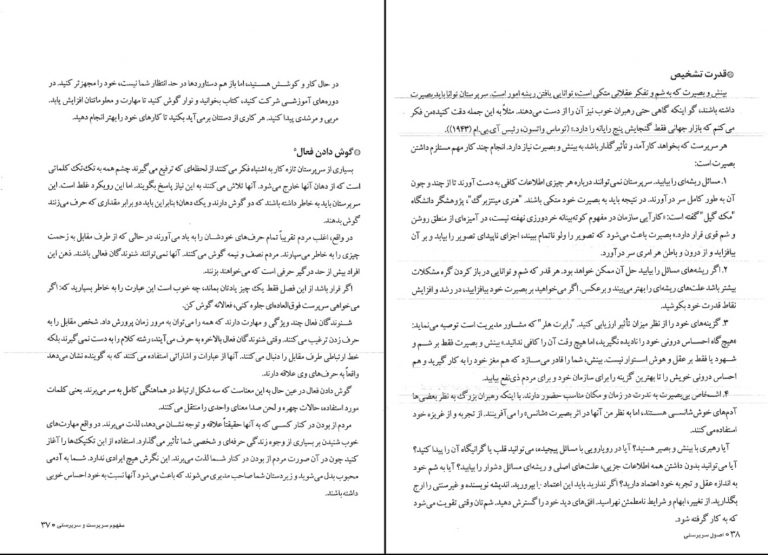 در حال کار و کوشش هستید، اما باز هم دستاوردها در حد انتظار شما نیست، خود را مجهزتر کنید. در
دوره‌های آموزشی شرکت کنید، کتاب بخوانید و نوار گوش کنید تا مهارت و معلوماتتان افزایش یابد.
مربی و مرشدی پیدا کنید. هر کاری از دستتان برمی‌آید بکنید تا کارهای خود را بهتر انجام دهید.
گوش دادن فعال
بسیاری از سرپرستان تازه کار به اشتباه فکر می‌کنند از لحظه‌ای که ترفیع می‌گیرند چشم همه به تک‌تک کلماتی
است که از دهان آنها خارج می‌شود. آنها تلاش می‌کنند به این نیاز پاسخ بگویند. اما این رویکرد غلط است. این
سرپرستان باید به خاطر داشته باشند که دو گوش دارند و یک دهان؛ بنابراین باید دو برابر مقداری که حرف می‌زنند
گوش بدهند.
در واقع، اغلب مردم تقریباً تمام حرف‌های خودشان را به یاد می‌آورند در حالی که از طرف مقابل به زحمت
چیزی را به خاطر می‌سپارند. مردم نصف و نیمه گوش می‌کنند. آنها نمی‌توانند شنوندگان فعالی باشند. ذهن این
افراد بیش از حد درگیر حرفی است که می‌خواهند بزنند.
اگر قرار باشد از این فصل فقط یک چیز یادتان بماند، چه خوب است این عبارت را به خاطر بسپارید که: اگر
می‌خواهی سرپرست فوق‌العاده‌ای جلوه کنی، فعالانه گوش کن.
شنوندگان فعال چند ویژگی و مهارت دارند که همه را می‌توان به مرور زمان پرورش داد. شخص مقابل را به
حرف زدن ترغیب می‌کنند. وقتی شنوندگان غیر فعال بالاخره به حرف می‌آیند، رشته کلام را به دست نمی‌گیرند بلکه
خط ارتباطی طرف مقابل را دنبال می‌کنند. آنها از عبارات و اشاراتی استفاده می‌کنند که به گوینده نشان می‌دهد
واقعاً به حرف‌های وی علاقه دارند.
گوش دادن فعال در عین حال به این معناست که سه شکل ارتباط در هماهنگی کامل به سر می‌برند. یعنی کلمات
مورد استفاده حالات چهره و لحن صدا معنای واحدی را منتقل می‌کنند.
مردم از بودن در کنار کسی که به آنها حقیقتاً علاقه و توجه نشان می‌دهد، لذت می‌برند. در واقع مهارت‌های
خوب شنیدن بر بسیاری از وجوه زندگی حرفه‌ای و شخصی شما تأثیر می‌گذارد. استفاده از این تکنیک‌ها را آغاز
کنید چون در آن صورت مردم از بودن در کنار شما لذت می‌برند. این نگرش هیچ ایرادی ندارد. شما به آدمی
محبوب بدل می‌شوید و زیردستان شما صاحب مدیری می‌شوند که باعث می‌شود آنها نسبت به خود احساس خوبی
داشته باشند.
مفهوم سرپرست و سرپرستی ۳۷
قدرت تشخیص
بینش و بصیرت که به شم و تفکر عقلانی متکی است، توانایی یافتن ریشه امور است. سرپرستان توانا باید بصیرت
داشته باشند، گو اینکه گاهی حتی رهبران خوب نیز آن را از دست می‌دهند. مثلاً به این جمله دقت کنید: «من فکر
می‌کنم که بازار جهانی فقط گنجایش پنج رایانه را دارد.» (توماس واتسون، رئیس آی.بی.ام (۱۹۴۳)).
هر سرپرست که بخواهد کارآمد و تأثیرگذار باشد به بینش و بصیرت نیاز دارد. انجام چند کار مهم مستلزم داشتن
بصیرت است:
۱. مسائل ریشه‌ای را بیابید. سرپرستان نمی‌توانند درباره هر چیزی اطلاعات کافی به دست آورند تا از چند و چون
آن به طور کامل سر در آورند. در نتیجه باید به بصیرت خود متکی باشند. «هنری مینتزبرگ»، پژوهشگر دانشگاه
«مک گیل» گفته است: «کارآیی سازمان در مفهوم کوته‌بینانه خردورزی نهفته نیست، در آمیزه‌ای از منطق روشن
و شم قوی قرار دارد.» بصیرت باعث می‌شود که تصویر را ولو ناتمام ببیند، اجزای ناپیدای تصویر را بیابد و بر آن
بیافزاید و از درون و باطن هر امری سر درآورد.
۲. اگر ریشه‌های مسائل را بیابید حل آن ممکن خواهد بود. هر قدر که شم و توانایی در باز کردن گره مشکلات
بیشتر باشد علت‌های ریشه‌ای را بهتر می‌بیند و برعکس. اگر می‌خواهید بر بصیرت خود بیافزایید، در رشد و افزایش
نقاط قدرت خود بکوشید.
۳. گزینه‌های خود را از نظر میزان تأثیر ارزیابی کنید. "رابرت هلر" که مشاور مدیریت است توصیه می‌نماید:
«هیچ گاه احساس درونی خود را نادیده نگیرید، اما هیچ وقت آن را کافی ندانید.» بصیرت فقط بر شم و
شهود یا فقط بر عقل و هوش استوار نیست. بینش، شما را قادر می‌سازد که هم مغز خود را به کار گیرید و هم
احساس درونی خویش را تا بهترین گزینه را برای سازمان خود و برای مردم ذی‌نفع بیابید.
۴. اشخاص بی‌بصیرت به ندرت در زمان و مکان مناسب حضور دارند. با اینکه رهبران بزرگ به نظر بعضی‌ها
آدم‌های خوش‌شانسی هستند، اما به نظر من آنها در اثر بصیرت «شانس» را می‌آفرینند. از تجربه و از غریزه خود
استفاده می‌کنند.
آیا رهبری با بینش و بصیر هستید؟ آیا در رویارویی با مسائل پیچیده، می‌توانید قلب یا گرانیگاه آن را پیدا کنید؟
آیا می‌توانید بدون داشتن همه اطلاعات جزیی، علت‌های اصلی و ریشه‌ای مسائل دشوار را بیابید؟ آیا به شم خود
به اندازه عقل و تجربه خود اعتماد دارید؟ اگر ندارید باید این اعتماد را بپرورید. اندیشه نویسنده و غیرسنتی را ارج
بگذارید. از تغییر، ابهام و شرایط نامطمئن نهراسید. افق‌های دید خود را گسترش دهید. شم‌تان وقتی تقویت می‌شود
که به کار گرفته شود.
۳۸ اصول سرپرستی